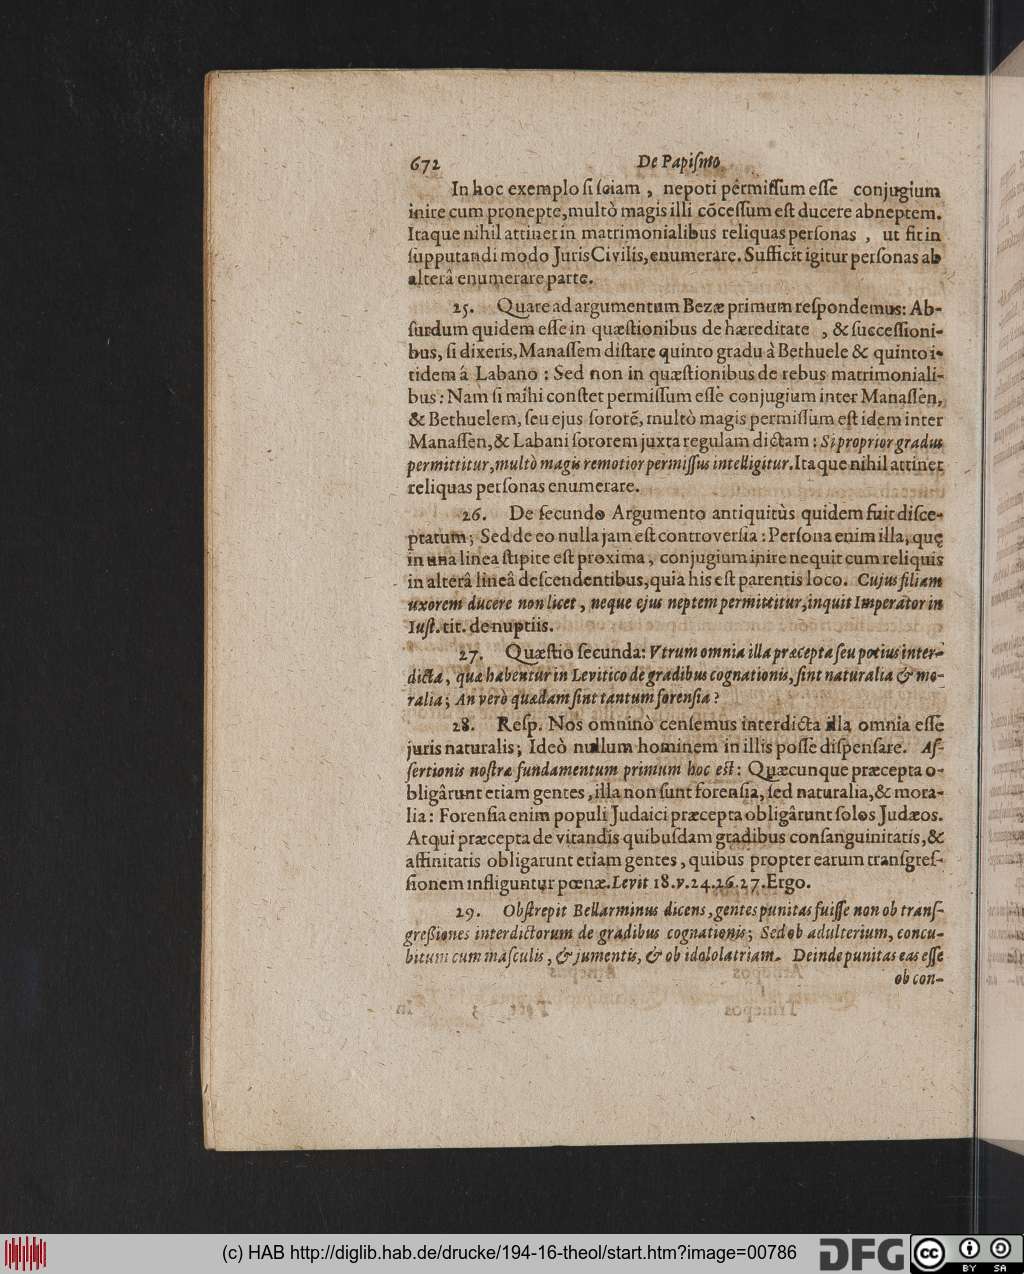 672 De Papiſmo
In hoc exemplo ſi ſciam, nepoti permiſſum eſſe conjugium
inire cum pronepte, multò magis illi cõceſſum eſt ducere abneptem.
Itaque nihil attinet in matrimonialibus reliquas perſonas, ut fit in
ſupputandi modo Juris Civilis, enumerare. Sufficit igitur perſonas ab
alterâ enumerare parte.
25. Quare ad argumentum Bezæ primum reſpondemus: Ab-
ſurdum quidem eſſe in quæſtionibus de hæreditate, & ſucceſſioni-
bus, ſi dixeris, Manaſſem diſtare quinto gradu à Bethuele & quinto i-
tidem á Labano: Sed non in quæſtionibus de rebus matrimoniali-
bus: Nam ſi mihi conſtet permiſſum eſſe conjugium inter Manaſſen,
& Bethuelem, ſeu ejus ſororẽ, multò magis permiſſum eſt idem inter
Manaſſen, & Labani ſororem juxta regulam dictam: Si proprior gradus
permittitur, multò magis remotior permiſſus intelligitur. Itaque nihil attinet
reliquas perſonas enumerare.
26. De ſecundo Argumento antiquitùs quidem fuit diſce-
ptatum; Sed de eo nulla jam eſt controverſia: Perſona enim illa, quę
in una linea ſtipite eſt proxima, conjugium inire nequit cum reliquis
in alterâ lineâ deſcendentibus, quia his eſt parentis loco. Cujus filiam
uxorem ducere non licet, neque ejus neptem permittitur, inquit Imperator in
Iuſt. tit. de nuptiis.
27. Quæſtio ſecunda: Vtrum omnia illa præcepta ſeu potius inter-
dicta, quæ habentur in Levitico de gradibus cognationis, ſint naturalia & mo-
ralia; An verò quædam ſint tantum forenſia?
28. Reſp. Nos omninò cenſemus interdicta illa omnia eſſe
juris naturalis; Ideò nullum hominem in illis poſſe diſpenſare. Aſ-
ſertionis noſtræ fundamentum primum hoc eſt: Quæcunque præcepta o-
bligârunt etiam gentes, illa non ſunt forenſia, ſed naturalia, & mora-
lia: Forenſia enim populi Judaici præcepta obligârunt ſolos Judæos.
Atqui præcepta de vitandis quibuſdam gradibus conſanguinitatis, &
affinitatis obligarunt etiam gentes, quibus propter earum tranſgreſ-
ſionem infliguntur pœnæ. Levit 18. v. 24. 26. 27. Ergo.
29. Obſtrepit Bellarminus dicens, gentes punitas fuiſſe non ob tranſ-
greſsiones interdictorum de gradibus cognationis; Sed ob adulterium, concu-
bitum cum maſculis, & jumentis, & ob idololatriam. Deinde punitas eas eſſe
ob con-
(c) HAB http://diglib.hab.de/drucke/194-16-theol/start.htm?image=00786
DFG
cc
BY SA